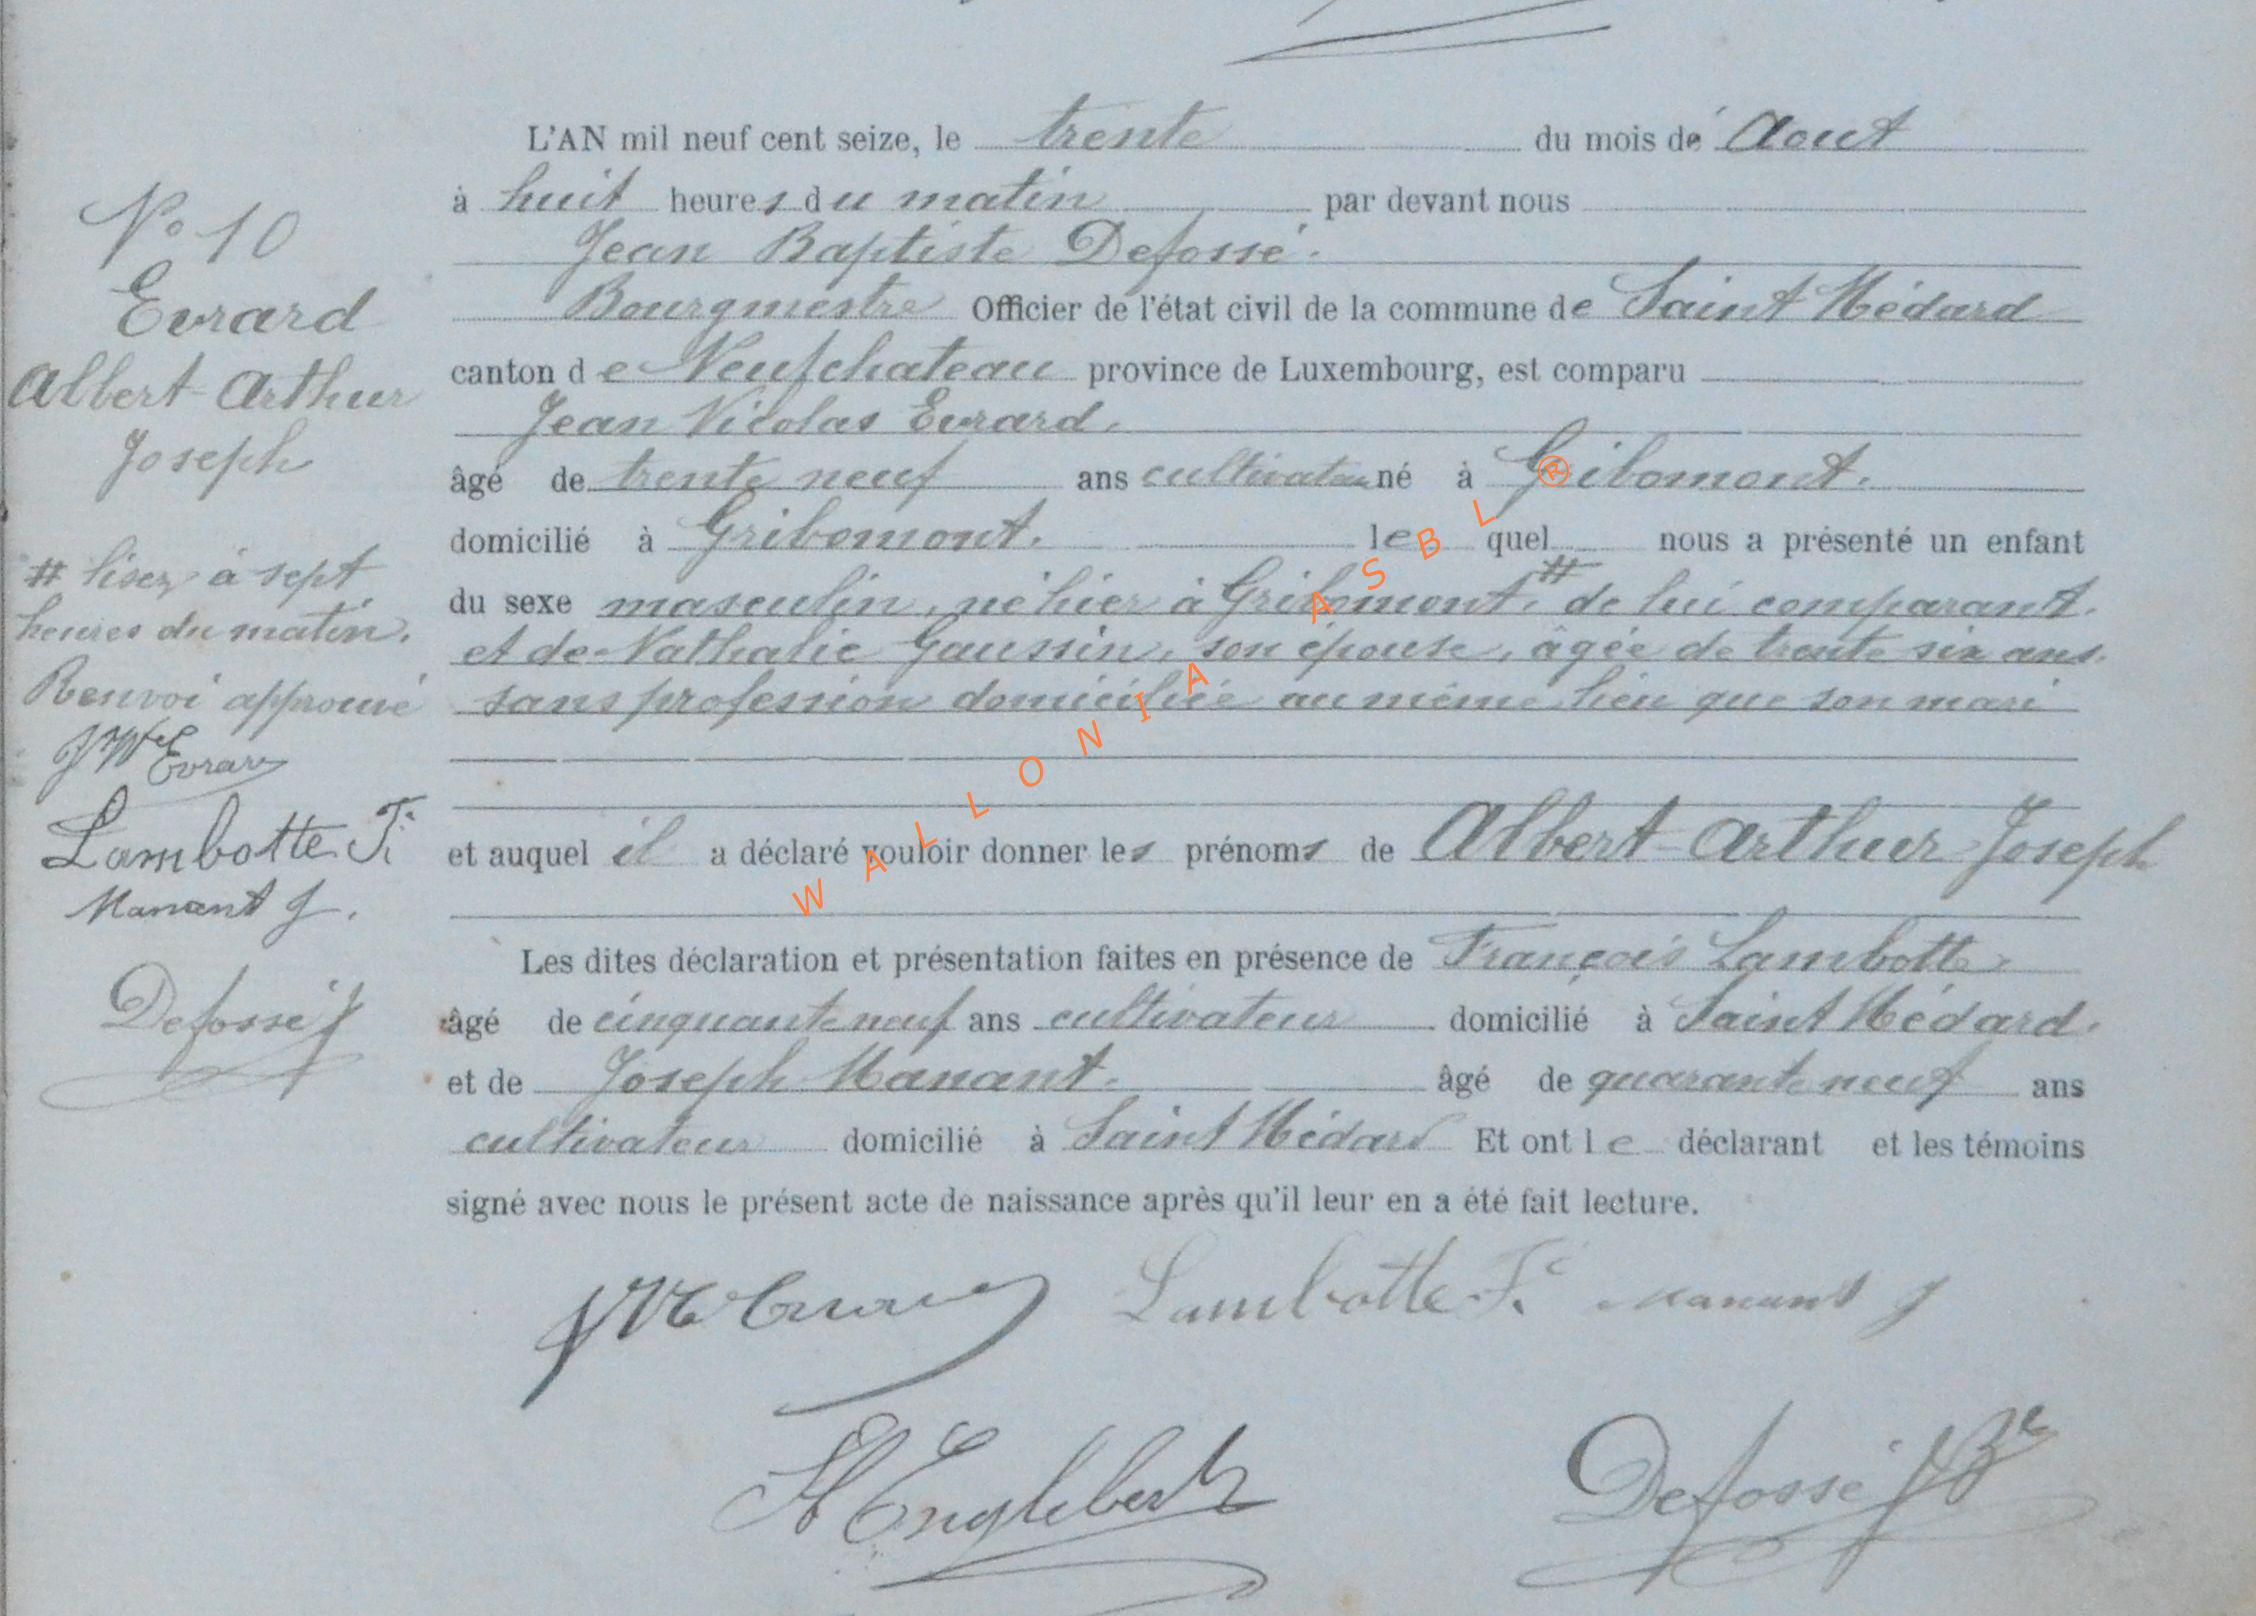 L'AN mil neuf cent seize, le trente du mois de Aout
à huit heures du matin par devant nous
Jean Baptiste Defossé.
Bourgmestre Officier de l'état civil de la commune de Saint Médard
canton de Neufchateau province de Luxembourg, est comparu
Jean Nicolas Evrard,
âgé de trente neuf ans cultivateur né à Gribomont.
domicilié à Gribomont. lequel nous a présenté un enfant
du sexe masculin, né hier à Gribomont, # de lui comparant.
et de Nathalie Gaussin, son épouse, âgée de trente six ans.
sans profession domiciliée au même lieu que son mari
et auquel il a déclaré vouloir donner les prénoms de Albert Arthur Joseph
Les dites déclaration et présentation faites en présence de François Lambotte,
âgé de cinquante neuf ans cultivateur domicilié à Saint Médard.
et de Joseph Manant. âgé de quarante neuf ans
cultivateur domicilié à Saint Médard Et ont le déclarant et les témoins
signé avec nous le présent acte de naissance après qu'il leur en a été fait lecture.
Lambotte F. Manant J
Englebert Defossé J Bte
No 10
Evrard
Albert Arthur
Joseph
# lisez à sept
heures du matin.
Renvoi approuvé
J Nc Evrard
Lambotte F.
Manant J.
Defossé J
WALLONIA ASBL ®